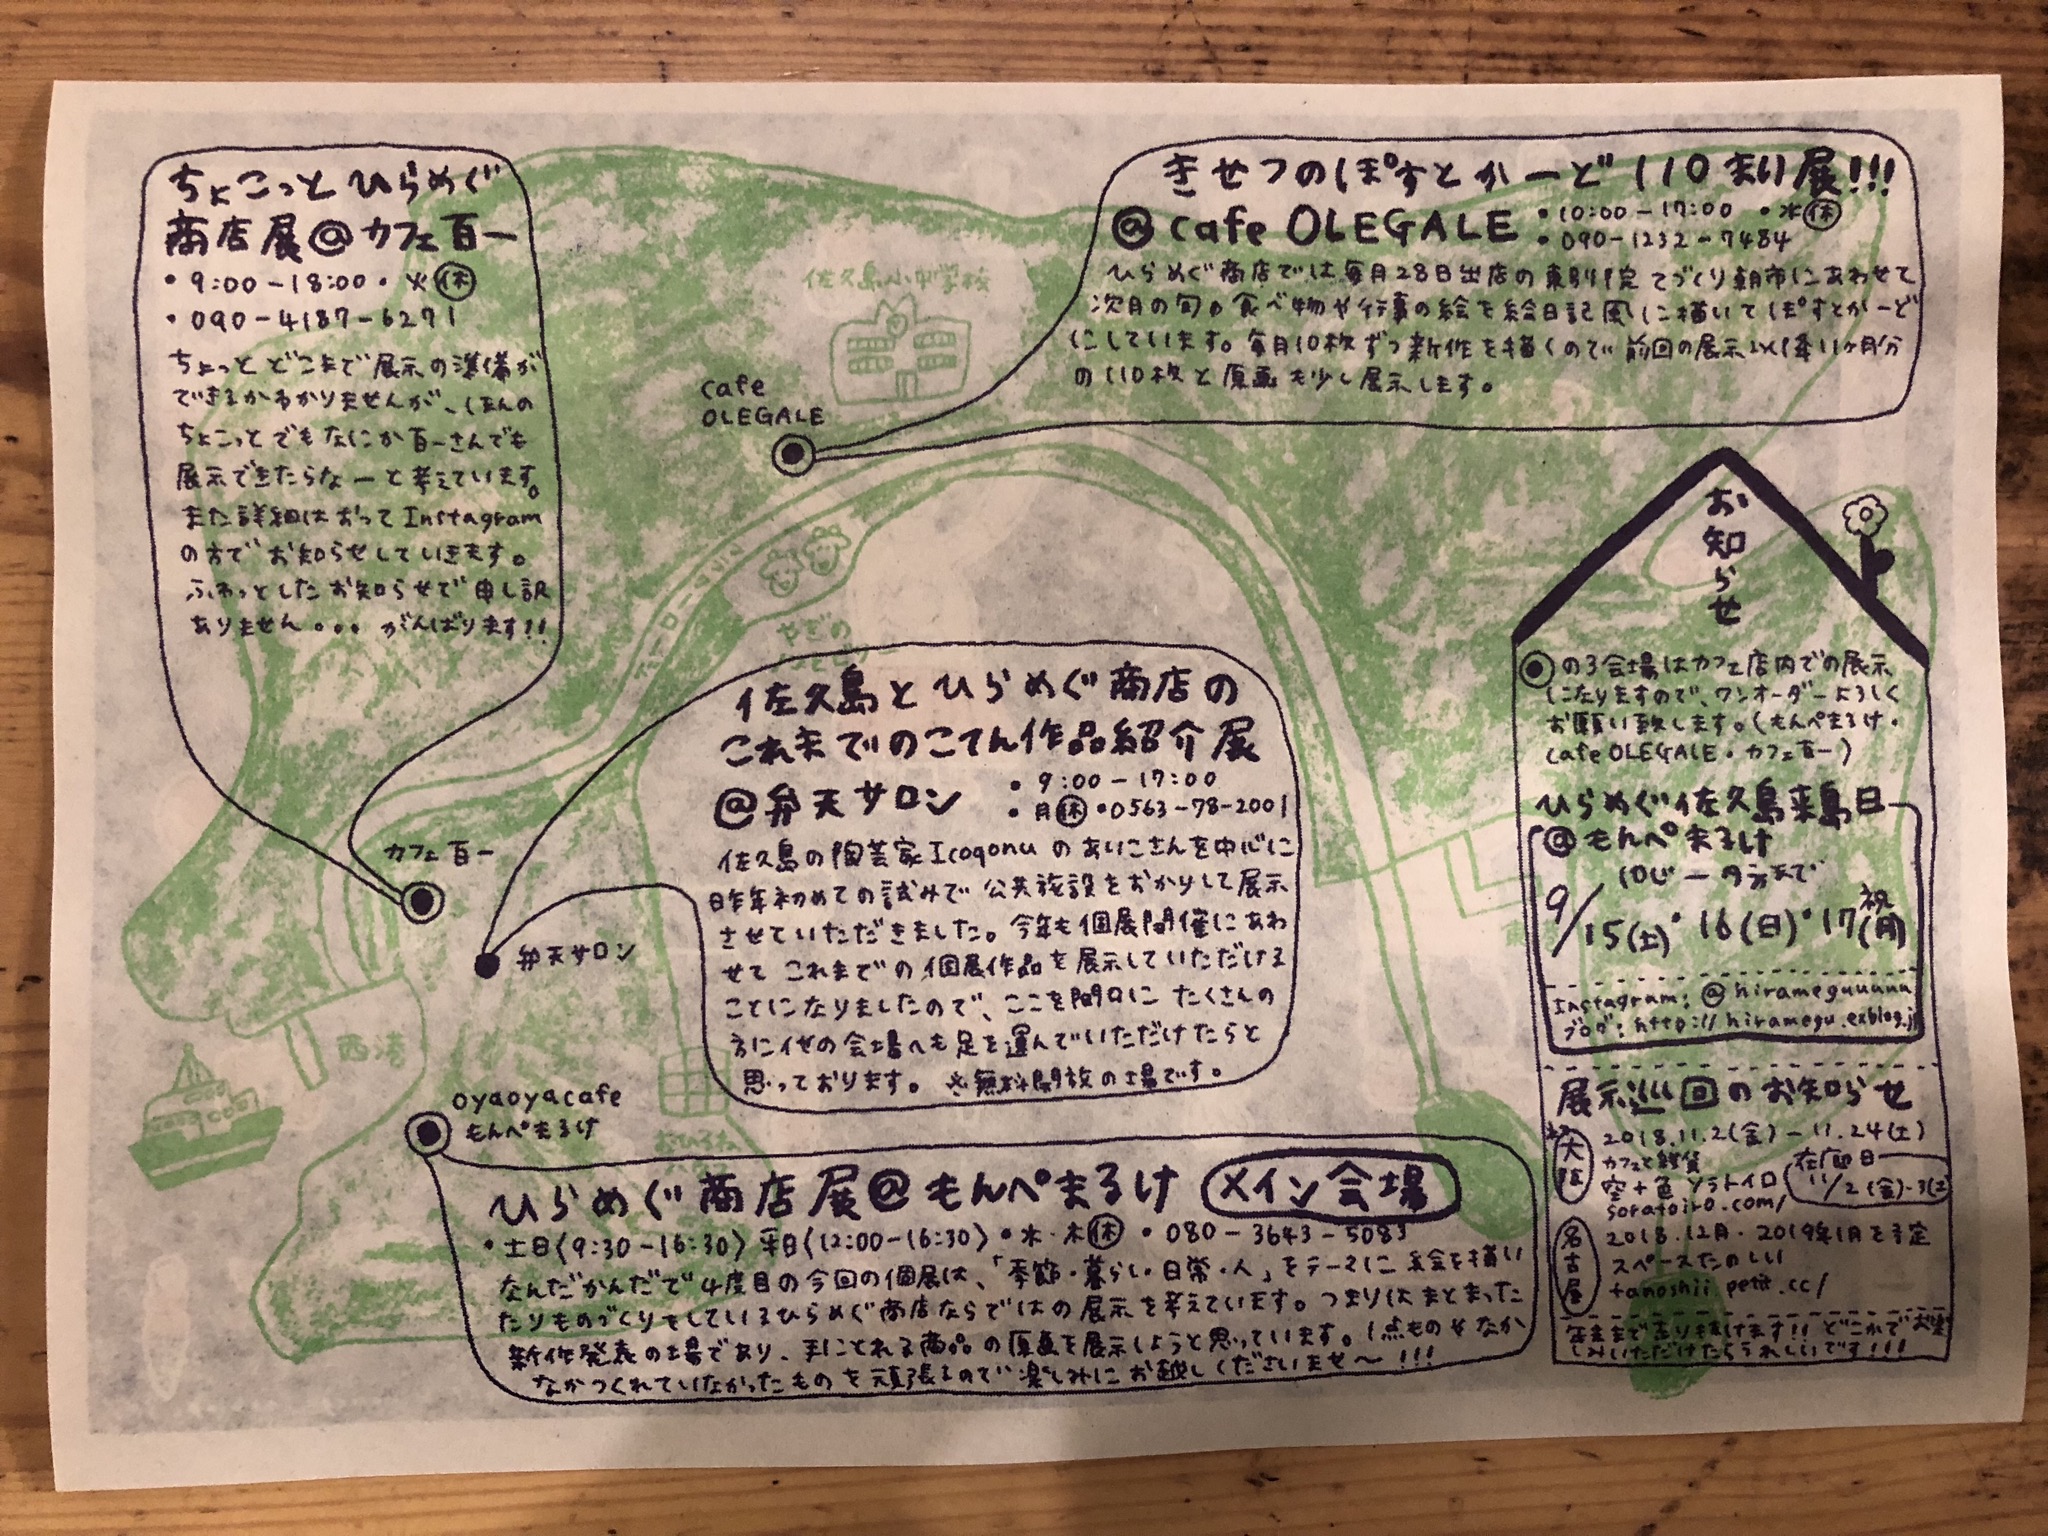 ちょこっとひらめぐ
商店展@カフェ百一
・9:00-18:00・火㊡
・090-4187-6271
ちょっとどこまで展示の準備が
できるかわかりませんが、ほんの
ちょこっとでもなにか百一さんでも
展示できたらなーと考えています。
また詳細はおってInstagram
の方でお知らせしていきます。
ふわっとしたお知らせで申し訳
ありません... がんばります!!
きせつのぽすとかーど110まい展!!!
@cafe OLEGALE
・10:00-17:00 ・水㊡
・090-1232-7484
ひらめぐ商店では毎月28日出店の東別院てづくり朝市にあわせて
次月の旬の食べ物や行事の絵を絵日記風に描いてぽすとかーど
にしています。毎月10枚ずつ新作を描くので前回の展示以降11ヶ月分
の110枚と原画も少し展示します。
佐久島小中学校
cafe
OLEGALE
やぎの
佐久島とひらめぐ商店の
これまでのこてん作品紹介展
@弁天サロン
・9:00-17:00
・月㊡・0563-78-2001
佐久島の陶芸家Icoqonuのあいこさんを中心に
昨年初めての試みで公共施設をおかりして展示
させていただきました。今年も個展開催にあわ
せてこれまでの個展作品を展示していただける
ことになりましたので、ここを閉口に たくさんの
方に他の会場へも足を運んでいただけたらと
思っております。 ※無料開放の場です。
カフェ百一
弁天サロン
西港
oyaoyacafe
もんぺまるけ
おひるね
ひらめぐ商店展@もんぺまるけ メイン会場
・土日(9:30-16:30) 平日(12:00-16:30)・水・木㊡・080-3643-5083
なんだかんだで4度目の今回の個展は、「季節・暮らし・日常・人」をテーマに絵を描い
たりものづくりをしているひらめぐ商店ならではの展示を考えています。つまりはまとまった
新作発表の場であり、手にとれる商品の原画を展示しようと思っています。1点ものもなか
なかつくれていなかったものを頑張るので楽しみにお越しくださいませ〜!!!
お知らせ
◉の3会場はカフェ店内での展示
になりますので、ワンオーダーよろしく
お願い致します。(もんぺまるけ・
cafe OLEGALE・カフェ百一)
ひらめぐ佐久島来島日
@もんぺまるけ
9/15(土)・16(日)・17(月)祝
Instagram: @hirameguuuuu
ブログ: http://hiramegu.exblog.jp
展示巡回のお知らせ
大阪
2018.11.2(金)-11.24(土)
カフェと雑貨
空+色 ソラトイロ
soratoiro.com/
在廊日
11/2(金)-3(土)
名古屋
2018.12月・2019年1月を予定
スペースたのしい
tanoshii.petit.cc/
年末まで走り抜けます!! どこかでお楽
しみいただけたらうれしいです!!!